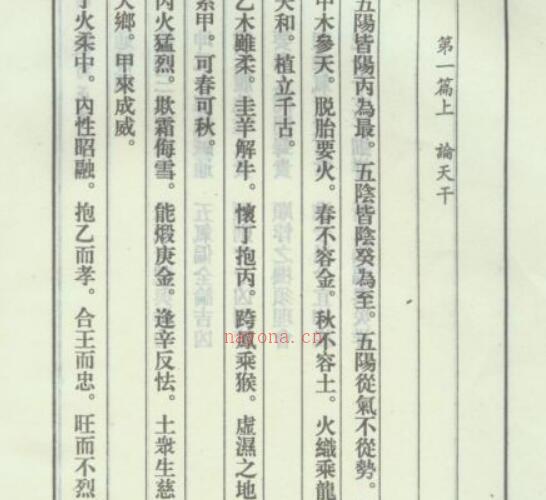 第一篇上 論天干
五陽皆陽丙為最。五陰皆陰癸為至。五陽從氣不從勢。
甲木參天。脱胎要火。春不容金。秋不容土。火熾乘龍
天和。植立千古。
乙木雖柔。刲羊解牛。懷丁抱丙。跨鳳乘猴。虛濕之地
繫甲。可春可秋。
丙火猛烈。欺霜侮雪。能煅庚金。逢辛反怯。土衆生慈
火鄉。甲來成威。
丁火柔中。內性昭融。抱乙而孝。合壬而忠。旺而不烈
nayona.cn